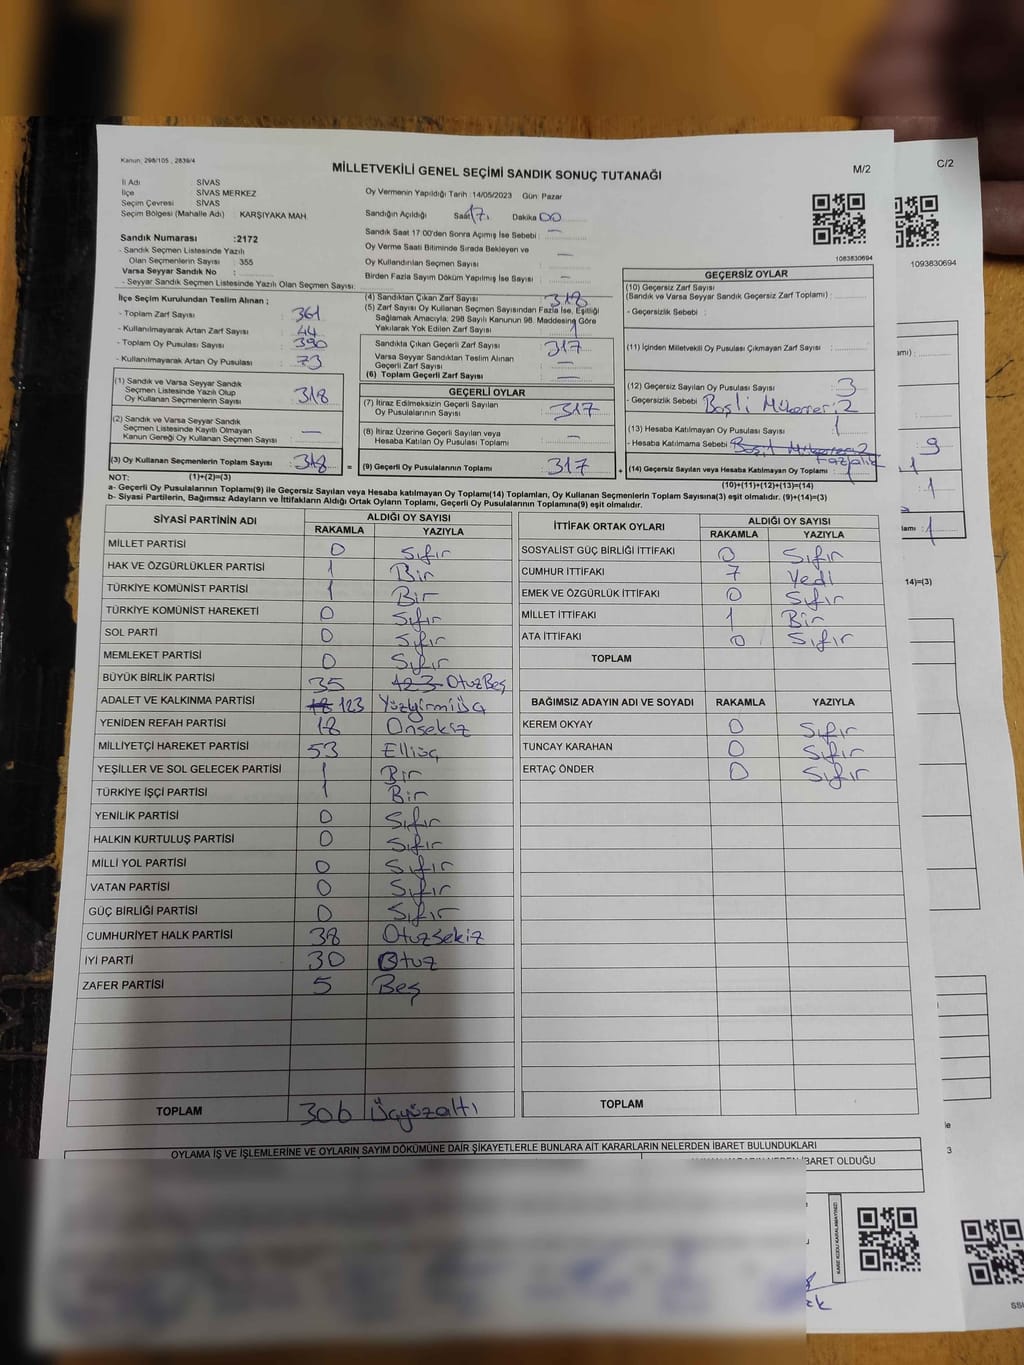 Kanun, 298/105 , 2839/4
MİLLETVEKİLİ GENEL SEÇİMİ SANDIK SONUÇ TUTANAĞI
M/2
C/2
İl Adı SİVAS
İlçe SİVAS MERKEZ
Seçim Çevresi SİVAS
Seçim Bölgesi (Mahalle Adı) : KARŞIYAKA MAH.
Oy Vermenin Yapıldığı Tarih :14/05/2023 Gün: Pazar
Sandığın Açıldığı Saat 17. Dakika 00
Sandık Numarası :2172
Sandık Saat 17.00'den Sonra Açımış İse Sebebi : —
- Sandık Seçmen Listesinde Yazılı
Olan Seçmenlerin Sayısı : 355
Oy Verme Saati Bitiminde Sırada Bekleyen ve
Oy Kullandırılan Seçmen Sayısı : —
Varsa Seyyar Sandık No :
Birden Fazla Sayım Döküm Yapılmış İse Sayısı : —
- Seyyar Sandık Seçmen Listesinde Yazılı Olan Seçmenlerin Sayısı:
1083830694
1093830694
İlçe Seçim Kurulundan Teslim Alınan ;
- Toplam Zarf Sayısı : 361
- Kullanılmayarak Artan Zarf Sayısı : 44
- Toplam Oy Pusulası Sayısı : 390
- Kullanılmayarak Artan Oy Pusulası : 73
(1) Sandık ve Varsa Seyyar Sandık
Seçmen Listesinde Yazılı Olup
Oy Kullanan Seçmenlerin Sayısı : 318
(2) Sandık ve Varsa Seyyar Sandık
Seçmen Listesinde Kayıtlı Olmayan
Kanun Gereği Oy Kullanan Seçmen Sayısı : —
(3) Oy Kullanan Seçmenlerin Toplam Sayısı : 318
(1)+(2)=(3)
(4) Sandıktan Çıkan Zarf Sayısı : 318
(5) Zarf Sayısı Oy Kullanan Seçmen Sayısından Fazla İse, Eşitliği
Sağlamak Amacıyla, 298 Sayılı Kanunun 98. Maddesine Göre
Yakılarak Yok Edilen Zarf Sayısı : 1
Sandıkta Çıkan Geçerli Zarf Sayısı : 317
Varsa Seyyar Sandıktan Teslim Alınan
Geçerli Zarf Sayısı : —
(6) Toplam Geçerli Zarf Sayısı : —
GEÇERLİ OYLAR
(7) İtiraz Edilmeksizin Geçerli Sayılan
Oy Pusulalarının Sayısı : 317
(8) İtiraz Üzerine Geçerli Sayılan veya
Hesaba Katılan Oy Pusulası Toplamı : —
= (9) Geçerli Oy Pusulalarının Toplamı : 317 +
GEÇERSİZ OYLAR
(10) Geçersiz Zarf Sayısı
(Sandık ve Varsa Seyyar Sandık Geçersiz Zarf Toplamı) :
- Geçersizlik Sebebi :
(11) İçinden Milletvekili Oy Pusulası Çıkmayan Zarf Sayısı :
(12) Geçersiz Sayılan Oy Pusulası Sayısı : 3
- Geçersizlik Sebebi
(13) Hesaba Katılmayan Oy Pusulası Sayısı : 1
- Hesaba Katılmama Sebebi :
(14) Geçersiz Sayılan veya Hesaba Katılmayan Oy Toplamı :
(10)+(11)+(12)+(13)=(14)
NOT:
a- Geçerli Oy Pusulalarının Toplamı(9) ile Geçersiz Sayılan veya Hesaba katılmayan Oy Toplamı(14) Toplamları, Oy Kullanan Seçmenlerin Toplam Sayısına(3) eşit olmalıdır. (9)+(14)=(3)
b- Siyasi Partilerin, Bağımsız Adayların ve İttifakların Aldığı Ortak Oyların Toplamı, Geçerli Oy Pusulalarının Toplamına(9) eşit olmalıdır.
SİYASİ PARTİNİN ADI ALDIĞI OY SAYISI
RAKAMLA YAZIYLA
MİLLET PARTİSİ 0 Sıfır
HAK VE ÖZGÜRLÜKLER PARTİSİ 1 Bir
TÜRKİYE KOMÜNİST PARTİSİ 1 Bir
TÜRKİYE KOMÜNİST HAREKETİ 0 Sıfır
SOL PARTİ 0 Sıfır
MEMLEKET PARTİSİ 0 Sıfır
BÜYÜK BİRLİK PARTİSİ 35 123 OtuzBeş
ADALET VE KALKINMA PARTİSİ 18 123 Yüzyirmiüç
YENİDEN REFAH PARTİSİ 18 Onsekiz
MİLLİYETÇİ HAREKET PARTİSİ 53 Elliüç
YEŞİLLER VE SOL GELECEK PARTİSİ 1 Bir
TÜRKİYE İŞÇİ PARTİSİ 1 Bir
YENİLİK PARTİSİ 0 Sıfır
HALKIN KURTULUŞ PARTİSİ 0 Sıfır
MİLLİ YOL PARTİSİ 0 Sıfır
VATAN PARTİSİ 0 Sıfır
GÜÇ BİRLİĞİ PARTİSİ 0 Sıfır
CUMHURİYET HALK PARTİSİ 38 Otuzsekiz
İYİ PARTİ 30 Otuz
ZAFER PARTİSİ 5 Beş
TOPLAM 306 Üçyüzaltı
İTTİFAK ORTAK OYLARI ALDIĞI OY SAYISI
RAKAMLA YAZIYLA
SOSYALİST GÜÇ BİRLİĞİ İTTİFAKI 0 Sıfır
CUMHUR İTTİFAKI 7 Yedi
EMEK VE ÖZGÜRLÜK İTTİFAKI 0 Sıfır
MİLLET İTTİFAKI 1 Bir
ATA İTTİFAKI 0 Sıfır
TOPLAM
BAĞIMSIZ ADAYIN ADI VE SOYADI RAKAMLA YAZIYLA
KEREM OKYAY 0 Sıfır
TUNCAY KARAHAN 0 Sıfır
ERTAÇ ÖNDER 0 Sıfır
TOPLAM
OYLAMA İŞ VE İŞLEMLERİNE VE OYLARIN SAYIM DÖKÜMÜNE DAİR ŞİKAYETLERLE BUNLARA AİT KARARLARIN NELERDEN İBARET BULUNDUKLARI
İBARET OLDUĞU
9
1
1
1
14)=(3)
3